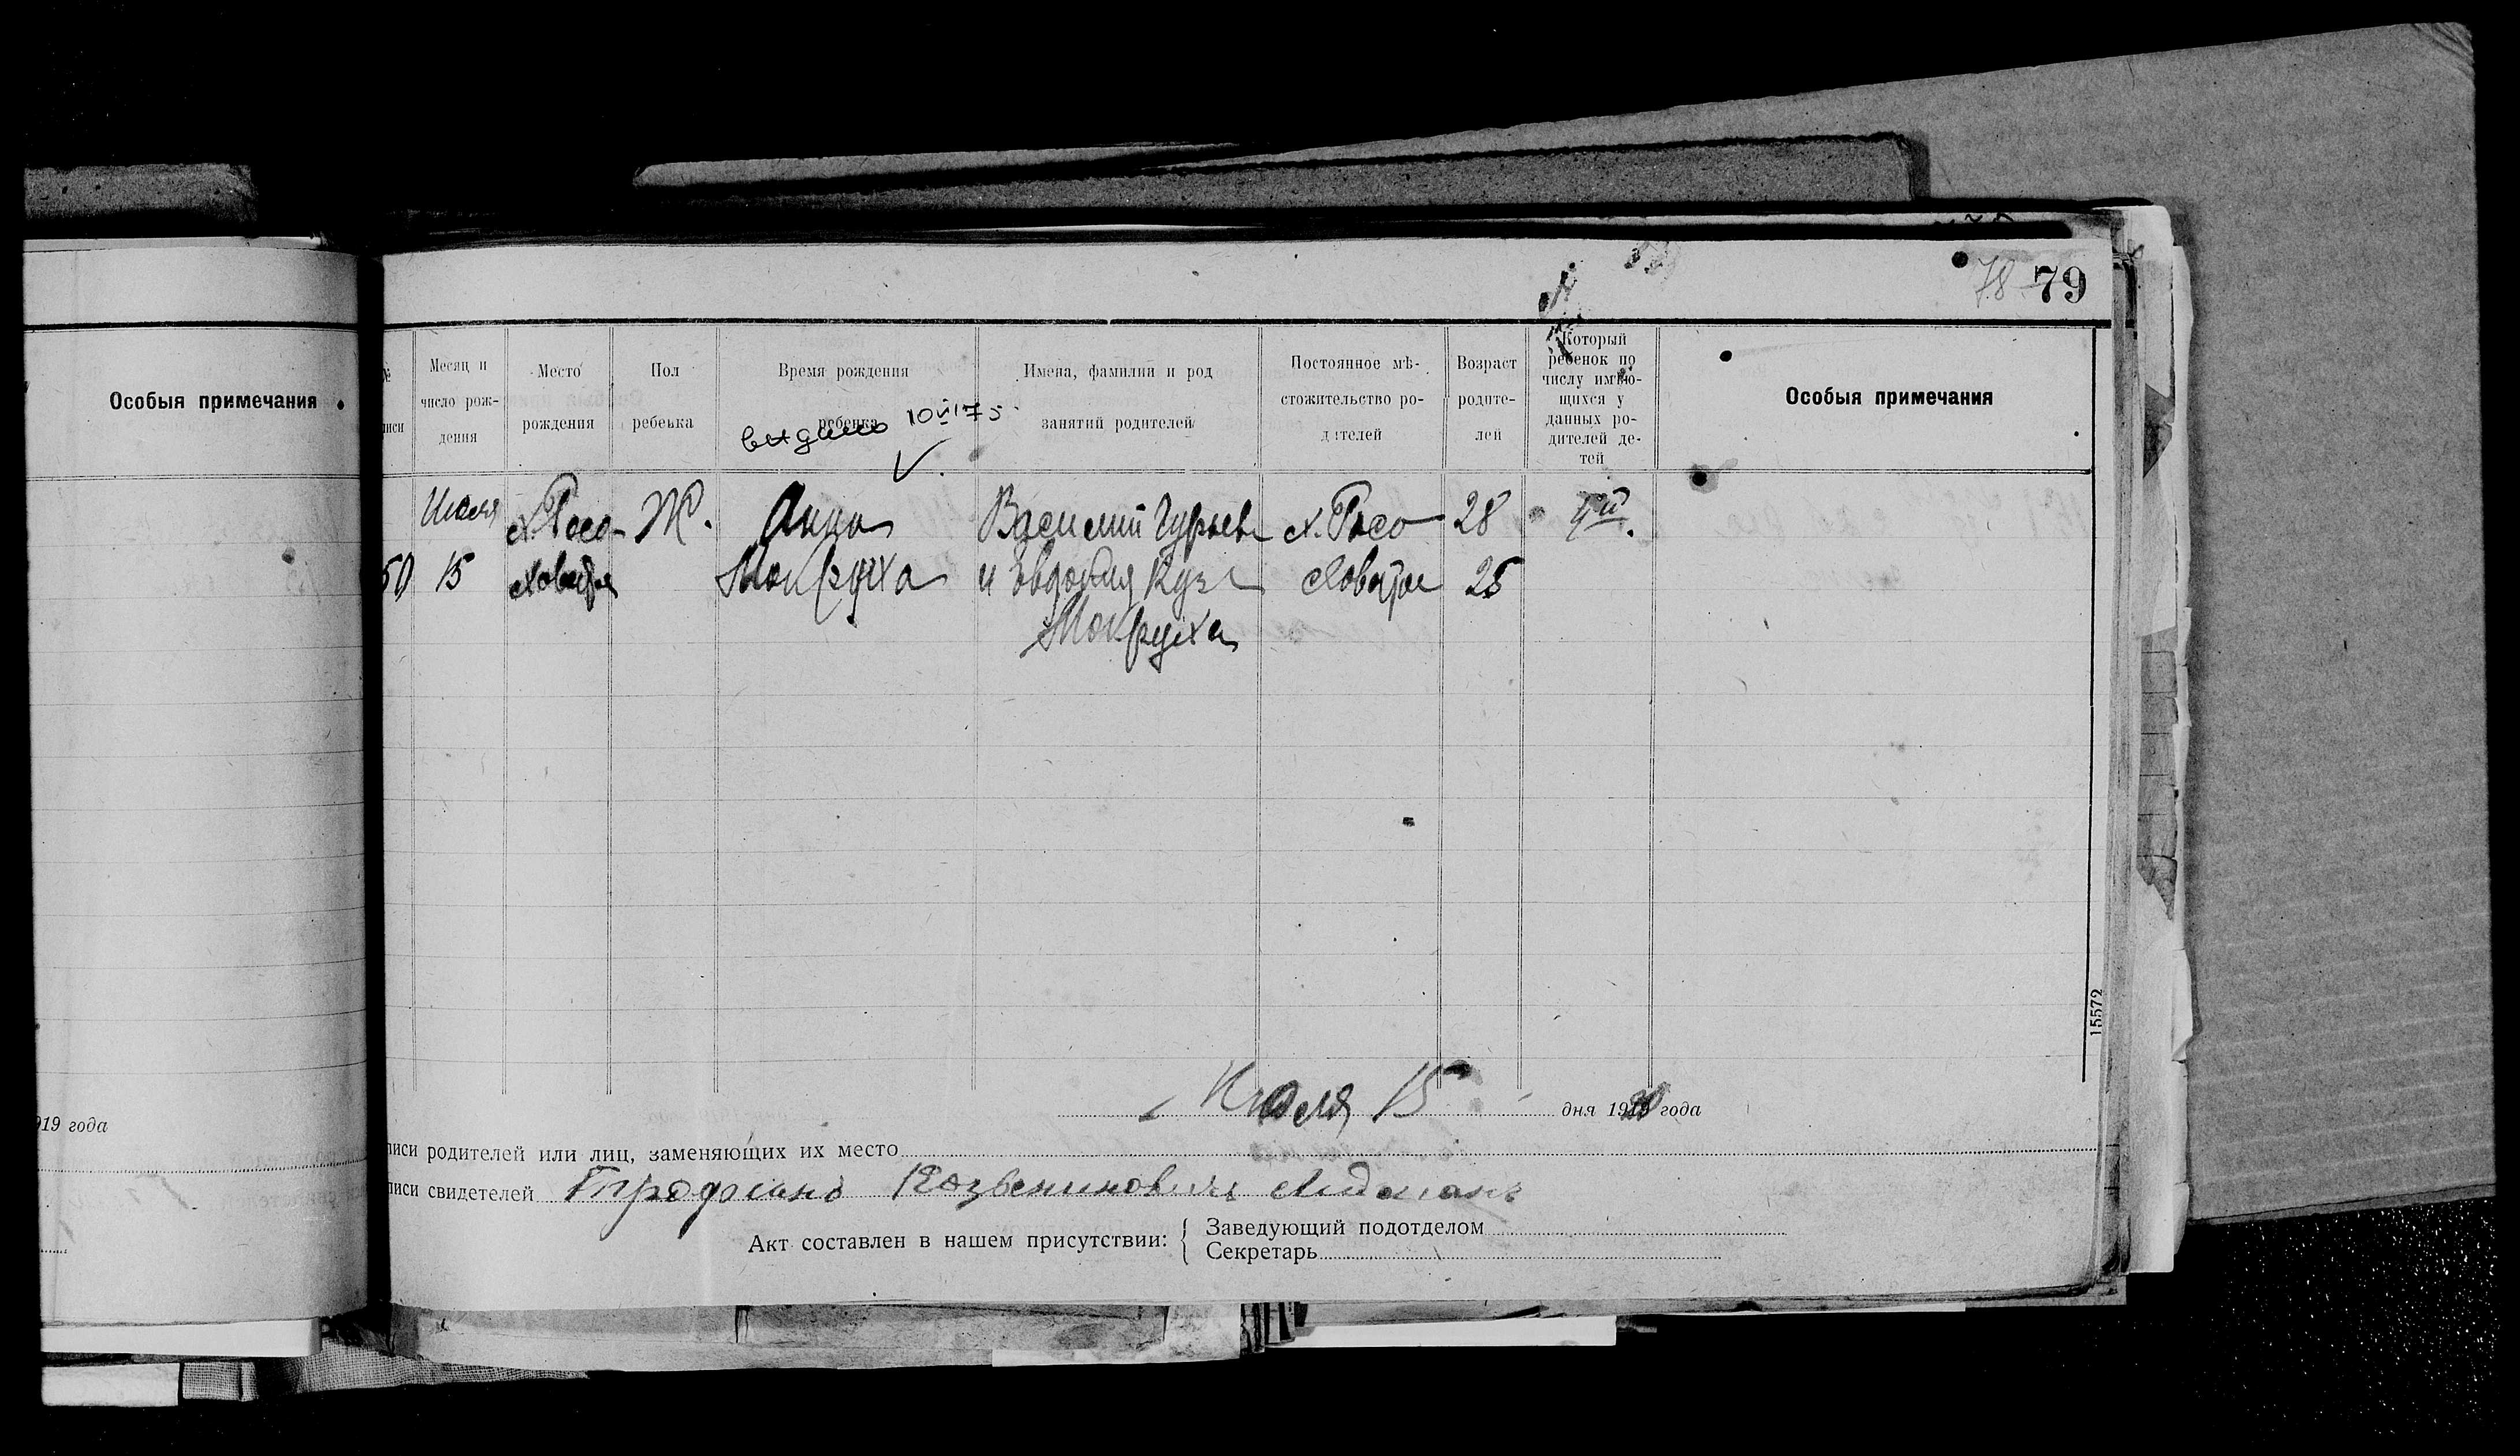 78 79
Особыя примечания
№
писи
Месяц и
число рож-
дения
Место
рождения
Пол
ребенка
Время рождения
ребенка
видано 10 VI 75
Имена, фамилии и род
занятий родителей
Постоянное мѣ-
стожительство ро-
дителей
Возраст
родите-
лей
Который
ребенок по
числу имѣю-
щихся у
данных ро-
дителей де-
тей
Особыя примечания
50
Июля
15
х. Росо-
ховатое
Ж.
Анна
Мокруха
Василий Гурьев
и Евдокия Куз
Мокруха
х. Росо
ховатое
28
25
15572
Июля 15 дня 1920 года
919 года
писи родителей или лиц, заменяющих их место
писи свидетелей
Акт составлен в нашем присутствии:
Заведующий подотделом
Секретарь